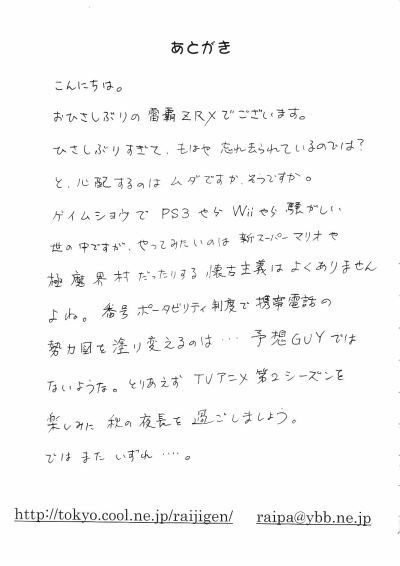 あとがき
こんにちは。
おひさしぶりの雷覇ZRXでございます。
ひさしぶりすぎて、もはや忘れ去られているのでは?
と、心配するのはムダですか、そうですか。
ゲイムショウでPS3やらWiiやら騒がしい
世の中ですが、やってみたいのは新スーパーマリオや
極魔界村だったりする懐古主義はよくありません
よね。番号ポータビリティ制度で携帯電話の
勢力図を塗り変えるのは… 予想GUYでは
ないような。とりあえずTVアニメ第2シーズンを
楽しみに秋の夜長を過ごしましょう。
ではまたいずれ…。
http://tokyo.cool.ne.jp/raijigen/ raipa@ybb.ne.jp